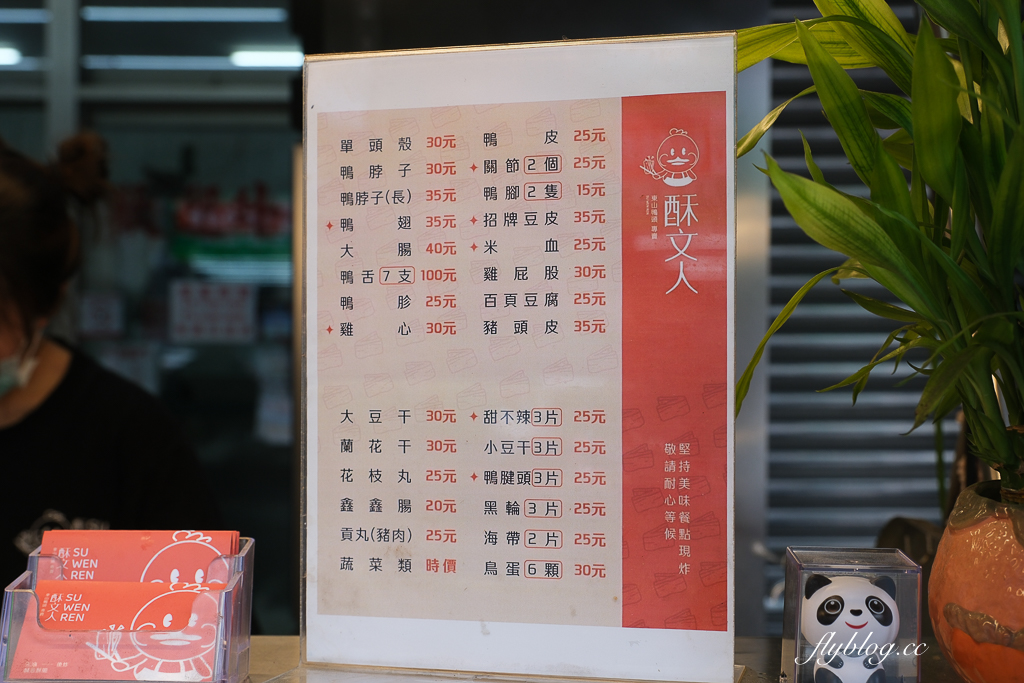 單頭殼 30元
鴨脖子 30元
鴨脖子(長) 35元
✦鴨翅 35元
大腸 40元
鴨舌7支 100元
鴨胗 25元
✦雞心 30元
鴨皮 25元
✦關節2個 25元
鴨腳2隻 15元
✦招牌豆皮 35元
✦米血 25元
雞屁股 30元
百頁豆腐 25元
豬頭皮 35元
大豆干 30元
蘭花干 30元
花枝丸 25元
鑫鑫腸 20元
貢丸(豬肉) 25元
蔬菜類 時價
✦甜不辣3片 25元
小豆干3片 25元
✦鴨腱頭3片 25元
黑輪3片 25元
海帶2片 25元
鳥蛋6顆 30元
酥文人
東山鴨頭 專賣
堅持美味餐點現炸
敬請耐心等候
酥文人 SU WEN REN
酥文人 SU WEN REN
flyblog.cc